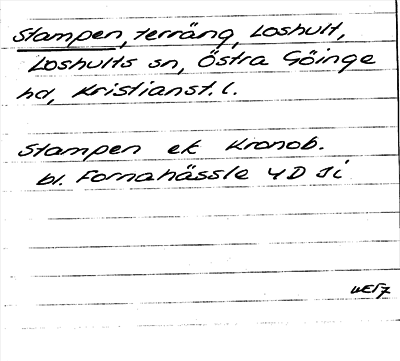 Stampen, terräng, Loshult,
Loshults sn, Östra Göinge
hd, Kristianst. l.
Stampen ek Kronob.
bl. Fornahässle 4D Ji